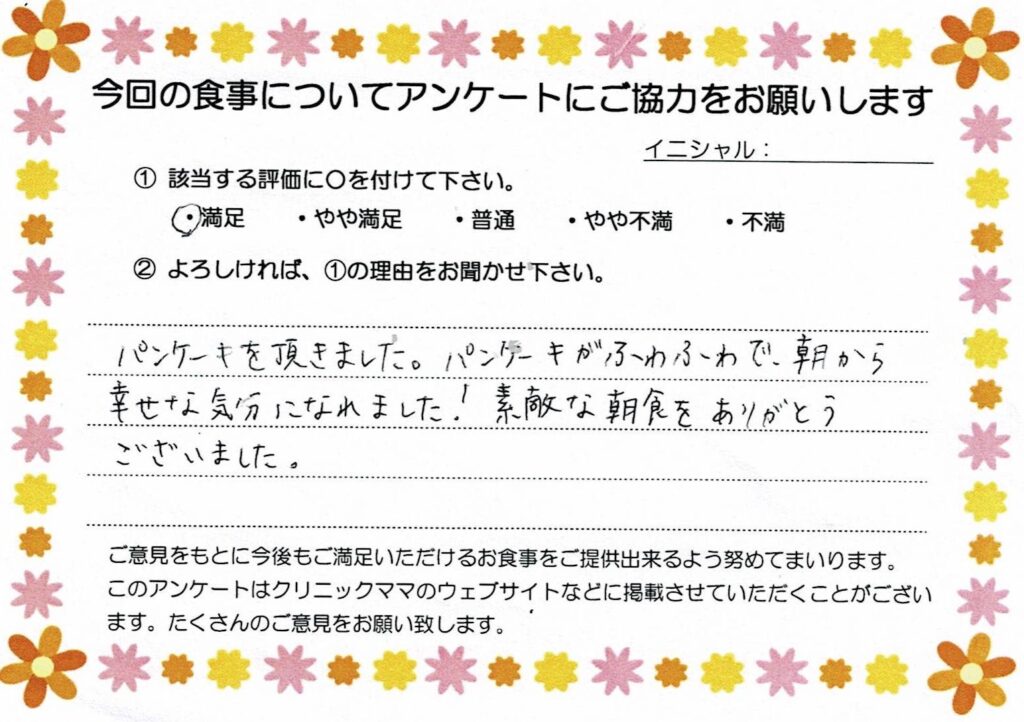 今回の食事についてアンケートにご協力をお願いします
イニシャル：
① 該当する評価に〇を付けて下さい。
・満足 ・やや満足 ・普通 ・やや不満 ・不満
② よろしければ、①の理由をお聞かせ下さい。
パンケーキを頂きました。パンケーキがふわふわで、朝から
幸せな気分になれました！素敵な朝食をありがとう
ございました。
ご意見をもとに今後もご満足いただけるお食事をご提供出来るよう努めてまいります。
このアンケートはクリニックママのウェブサイトなどに掲載させていただくことがござい
ます。たくさんのご意見をお願い致します。